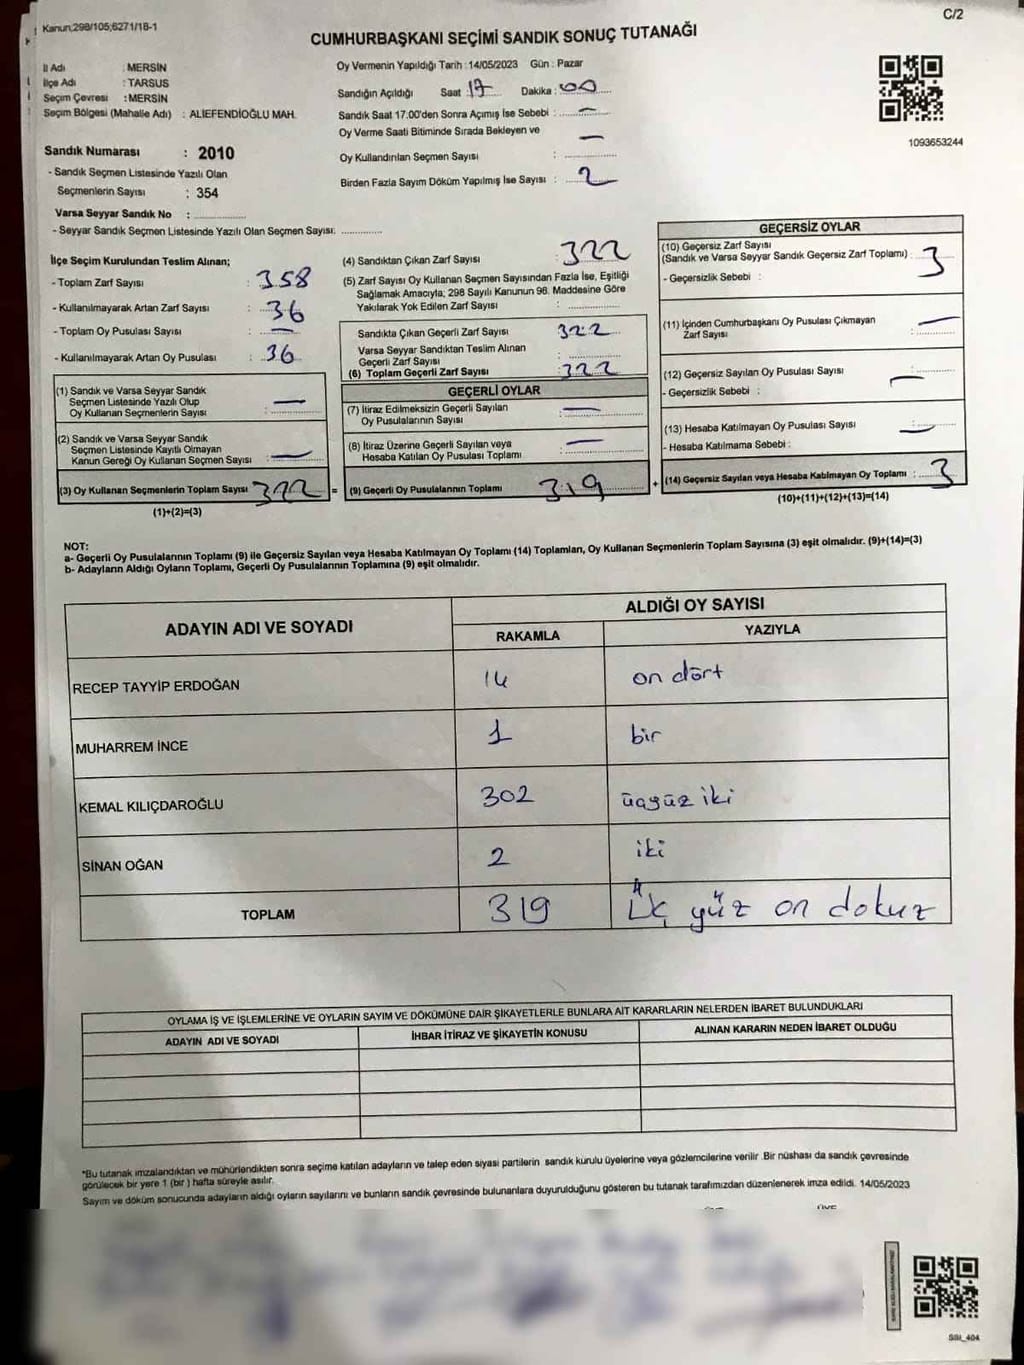 Kanun;298/105;6271/18-1
C/2
CUMHURBAŞKANI SEÇİMİ SANDIK SONUÇ TUTANAĞI
İl Adı : MERSİN
İlçe Adı : TARSUS
Seçim Çevresi : MERSİN
Seçim Bölgesi (Mahalle Adı) : ALİEFENDİOĞLU MAH.
Oy Vermenin Yapıldığı Tarih :14/05/2023 Gün : Pazar
Sandığın Açıldığı Saat : 17 Dakika : 00
Sandık Saat 17:00'den Sonra Açımış İse Sebebi : —
Oy Verme Saati Bitiminde Sırada Bekleyen ve
Oy Kullandırılan Seçmen Sayısı : —
Birden Fazla Sayım Döküm Yapılmış İse Sayısı : 2
1093653244
Sandık Numarası : 2010
- Sandık Seçmen Listesinde Yazılı Olan
Seçmenlerin Sayısı : 354
Varsa Seyyar Sandık No :
- Seyyar Sandık Seçmen Listesinde Yazılı Olan Seçmen Sayısı:
İlçe Seçim Kurulundan Teslim Alınan;
- Toplam Zarf Sayısı : 358
- Kullanılmayarak Artan Zarf Sayısı : 36
- Toplam Oy Pusulası Sayısı : —
- Kullanılmayarak Artan Oy Pusulası : 36
(1) Sandık ve Varsa Seyyar Sandık
Seçmen Listesinde Yazılı Olup
Oy Kullanan Seçmenlerin Sayısı : —
(2) Sandık ve Varsa Seyyar Sandık
Seçmen Listesinde Kayıtlı Olmayan
Kanun Gereği Oy Kullanan Seçmen Sayısı : —
(3) Oy Kullanan Seçmenlerin Toplam Sayısı 322 =
(1)+(2)=(3)
(4) Sandıktan Çıkan Zarf Sayısı : 322
(5) Zarf Sayısı Oy Kullanan Seçmen Sayısından Fazla İse, Eşitliği
Sağlamak Amacıyla; 298 Sayılı Kanunun 98. Maddesine Göre
Yakılarak Yok Edilen Zarf Sayısı :
Sandıkta Çıkan Geçerli Zarf Sayısı : 322
Varsa Seyyar Sandıktan Teslim Alınan
Geçerli Zarf Sayısı :
(6) Toplam Geçerli Zarf Sayısı : 322
GEÇERLİ OYLAR
(7) İtiraz Edilmeksizin Geçerli Sayılan
Oy Pusulalarının Sayısı : —
(8) İtiraz Üzerine Geçerli Sayılan veya
Hesaba Katılan Oy Pusulası Toplamı : —
(9) Geçerli Oy Pusulalarının Toplamı 319 +
GEÇERSİZ OYLAR
(10) Geçersiz Zarf Sayısı
(Sandık ve Varsa Seyyar Sandık Geçersiz Zarf Toplamı) : 3
- Geçersizlik Sebebi :
(11) İçinden Cumhurbaşkanı Oy Pusulası Çıkmayan
Zarf Sayısı : —
(12) Geçersiz Sayılan Oy Pusulası Sayısı : —
- Geçersizlik Sebebi :
(13) Hesaba Katılmayan Oy Pusulası Sayısı : —
- Hesaba Katılmama Sebebi :
(14) Geçersiz Sayılan veya Hesaba Katılmayan Oy Toplamı : 3
(10)+(11)+(12)+(13)=(14)
NOT:
a- Geçerli Oy Pusulalarının Toplamı (9) ile Geçersiz Sayılan veya Hesaba Katılmayan Oy Toplamı (14) Toplamları, Oy Kullanan Seçmenlerin Toplam Sayısına (3) eşit olmalıdır. (9)+(14)=(3)
b- Adayların Aldığı Oyların Toplamı, Geçerli Oy Pusulalarının Toplamına (9) eşit olmalıdır.
ADAYIN ADI VE SOYADI
ALDIĞI OY SAYISI
RAKAMLA YAZIYLA
RECEP TAYYİP ERDOĞAN 14 on dört
MUHARREM İNCE 1 bir
KEMAL KILIÇDAROĞLU 302 üçyüz iki
SİNAN OĞAN 2 iki
TOPLAM 319 Üç yüz on dokuz
OYLAMA İŞ VE İŞLEMLERİNE VE OYLARIN SAYIM VE DÖKÜMÜNE DAİR ŞİKAYETLERLE BUNLARA AİT KARARLARIN NELERDEN İBARET BULUNDUKLARI
ADAYIN ADI VE SOYADI İHBAR İTİRAZ VE ŞİKAYETİN KONUSU ALINAN KARARIN NEDEN İBARET OLDUĞU
*Bu tutanak imzalandıktan ve mühürlendikten sonra seçime katılan adayların ve talep eden siyasi partilerin sandık kurulu üyelerine veya gözlemcilerine verilir .Bir nüshası da sandık çevresinde
görülecek bir yere 1 (bir ) hafta süreyle asılır.
Sayım ve döküm sonucunda adayların aldığı oyların sayılarını ve bunların sandık çevresinde bulunanlara duyurulduğunu gösteren bu tutanak tarafımızdan düzenlenerek imza edildi. 14/05/2023
SSI_404